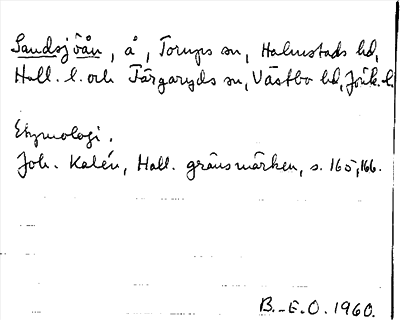 Sandsjöån, å, Torups sn, Halmstads hd,
Hall. l. och Färgaryds sn, Västbo hd, Jönk. l.
Etymologi.
Joh. Kalén, Hall. gränsmärken, s. 165, 166.
B.-E.O. 1960.